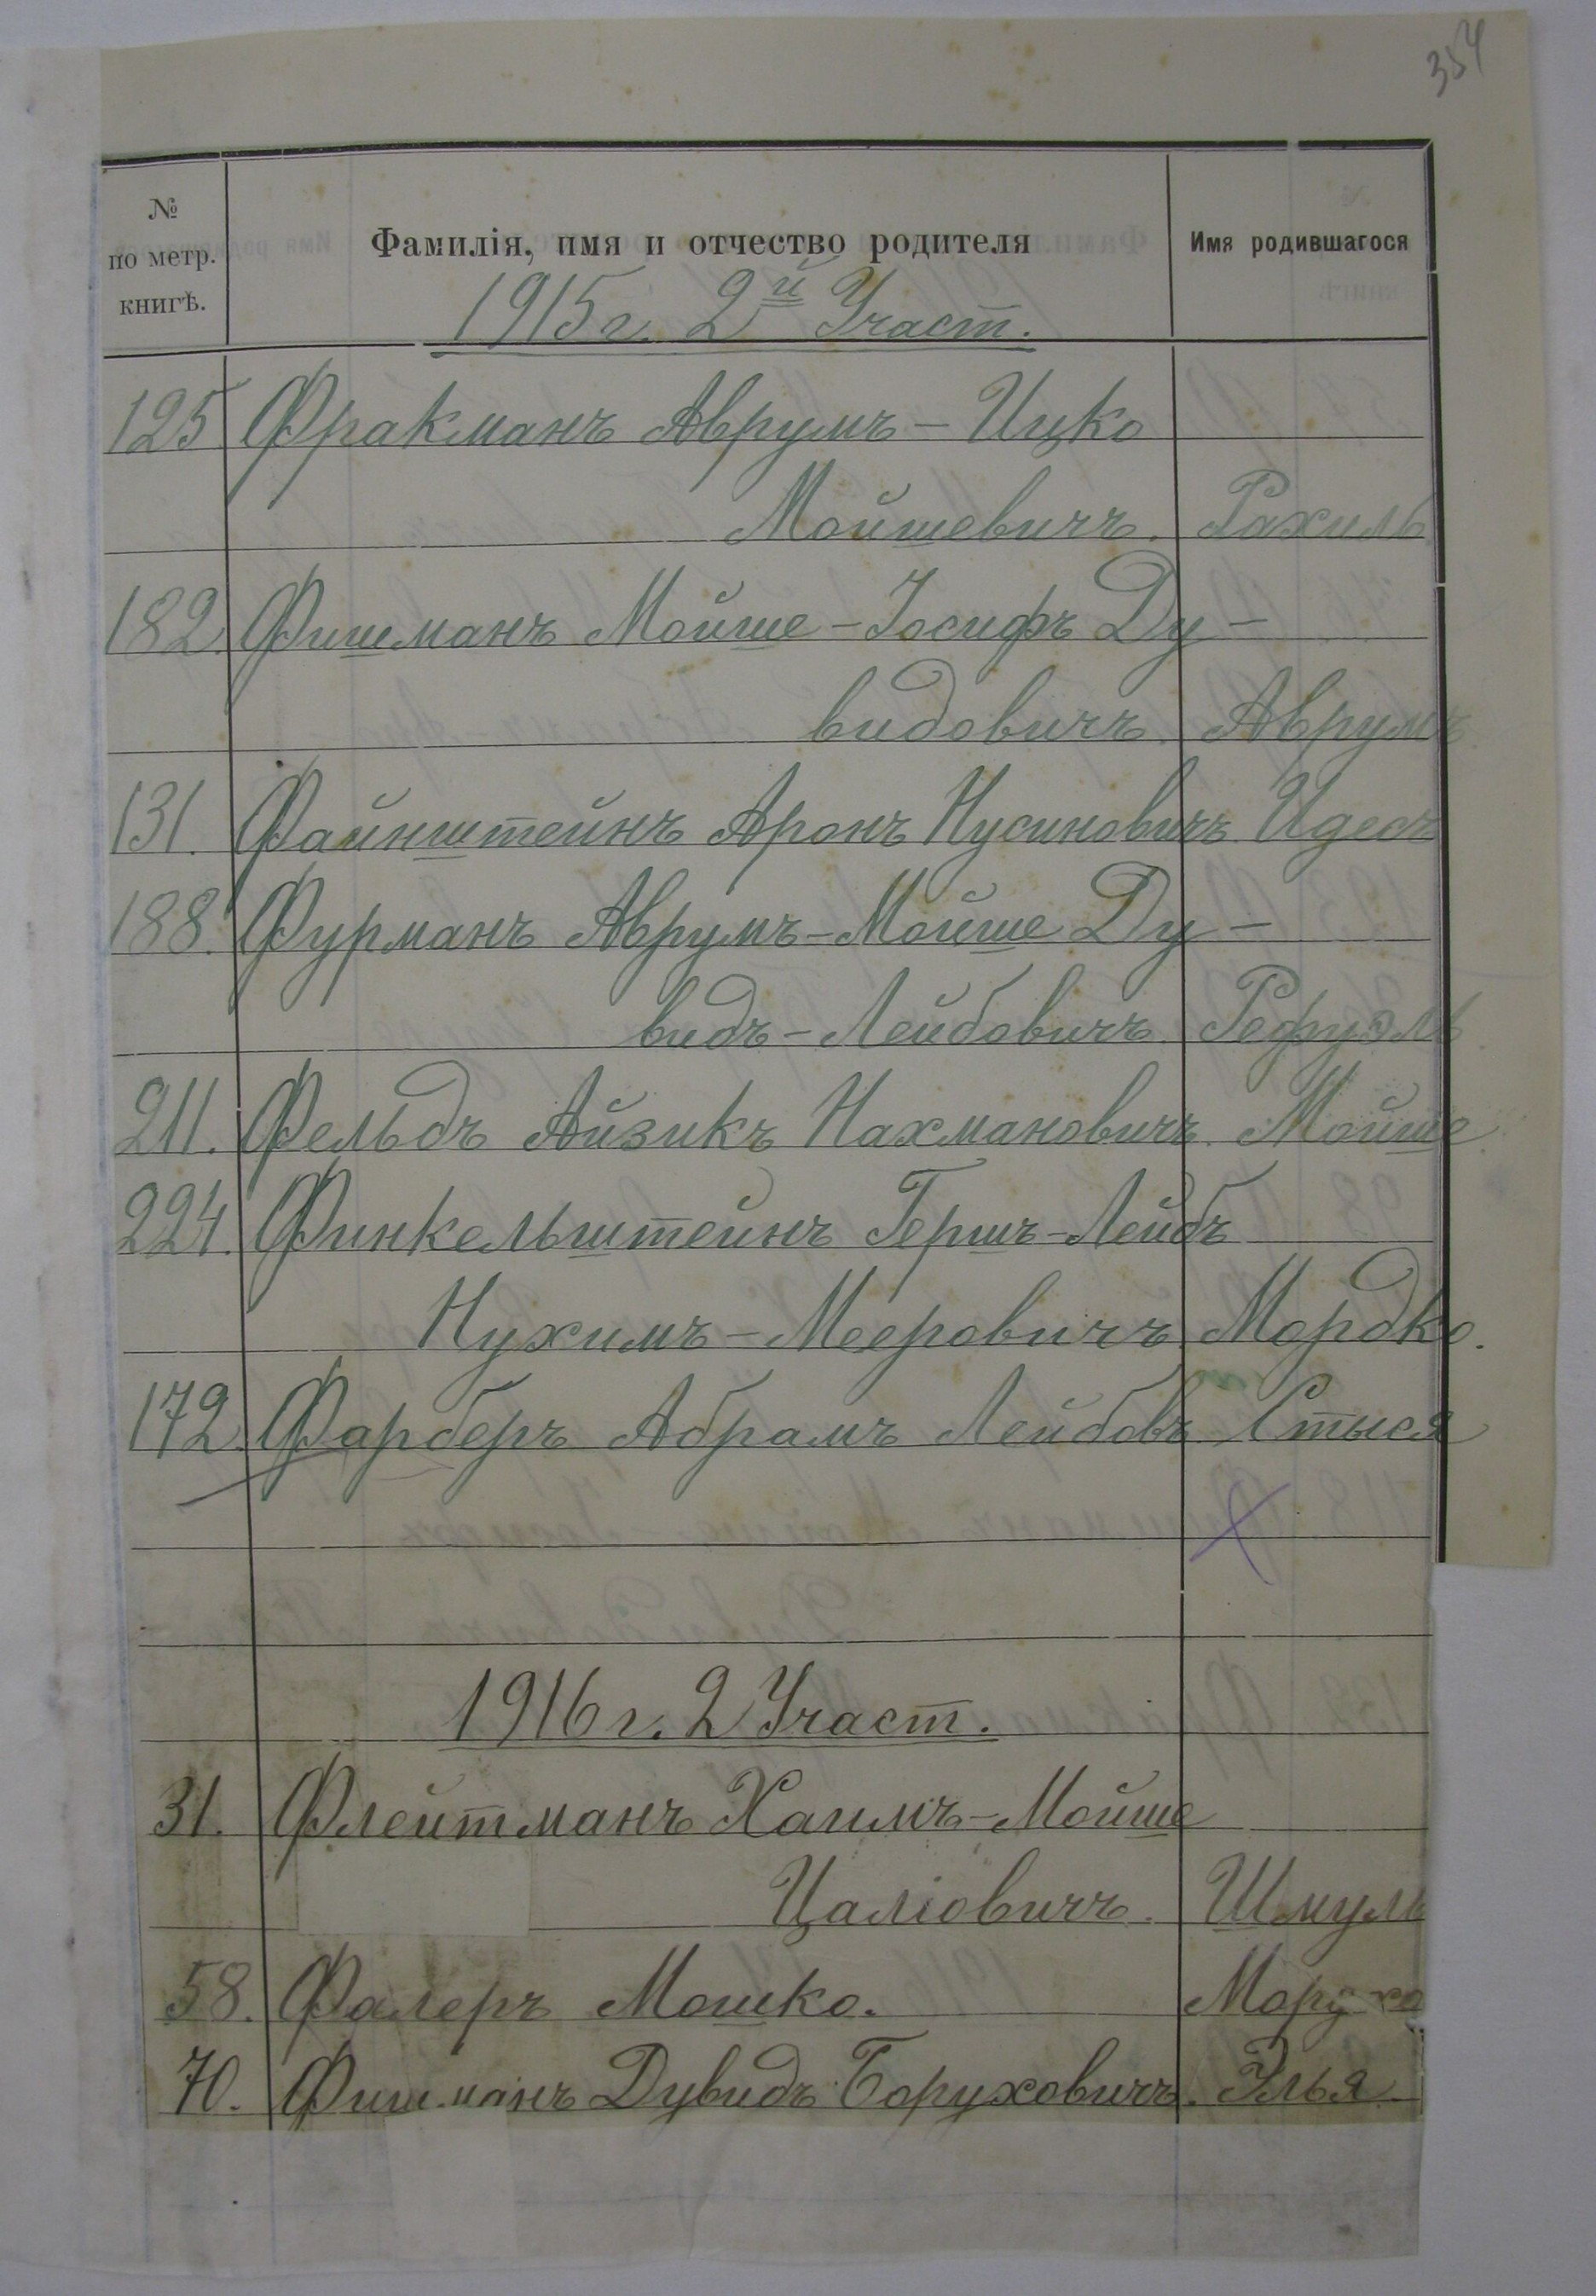 354
№
по метр.
книгѣ.
Фамилія, имя и отчество родителя
Имя родившагося
1915 г. 2й Участ.
125 Фракманъ Аврумъ-Ицко
Мойшевичъ. Рахиль
182. Фишманъ Мойше-Іосифъ Ду-
видовичъ. Аврумъ
131. Файнштейнъ Аронъ Нусиновичъ Идесъ
188. Фурманъ Аврумъ-Мойше Ду-
видъ-Лейбовичъ. Рефуэль
211. Фельдъ Айзикъ Нахмановичъ. Мойше
224. Финкельштейнъ Гершъ-Лейбъ
Нухимъ-Мееровичъ. Мордко.
172. Фарберъ Абрамъ Лейбовъ Стыся
1916 г. 2 Участ.
31. Флейтманъ Хаимъ-Мойше
Цаліовичъ. Шмуль
58. Фалеръ Мошко.
70. Фишманъ Дувидъ Боруховичъ. Элья.